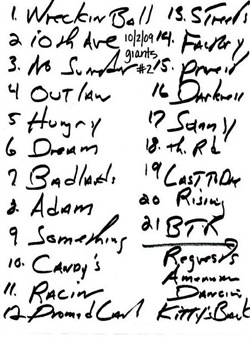 1. Wreckin Ball
2 10th Ave
3. No Surrender
4 OUTLAW
5 Hungry
6 Dream
7 Badlands
8. Adam
9 Something
10. CANDY'S
11. RACIN
12. Promised Land
10/2/09
giants
#2
13. Streets
14. Factory
15. Proveit
16 Darkness
17 Sunny
18. th Rd
19 LAST TO DIE
20 Rising
21 BTR
Requests
American
Dancing
Kitty's Back